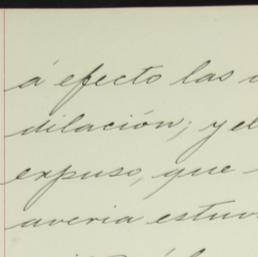 á efecto las
dilación; y el
expuso, que
averia estuv